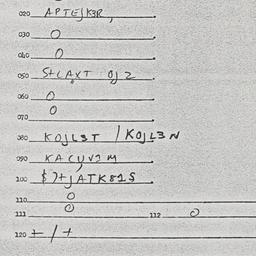 020 APTEJK3R,
030 0
040 0
050 S+CAXT OJ2
060 0
070 0
080 KOJLST / KOJL3N
090 KACUV2M
100 $)+JATK81S
110 0
111 0 112 0
120 + / +